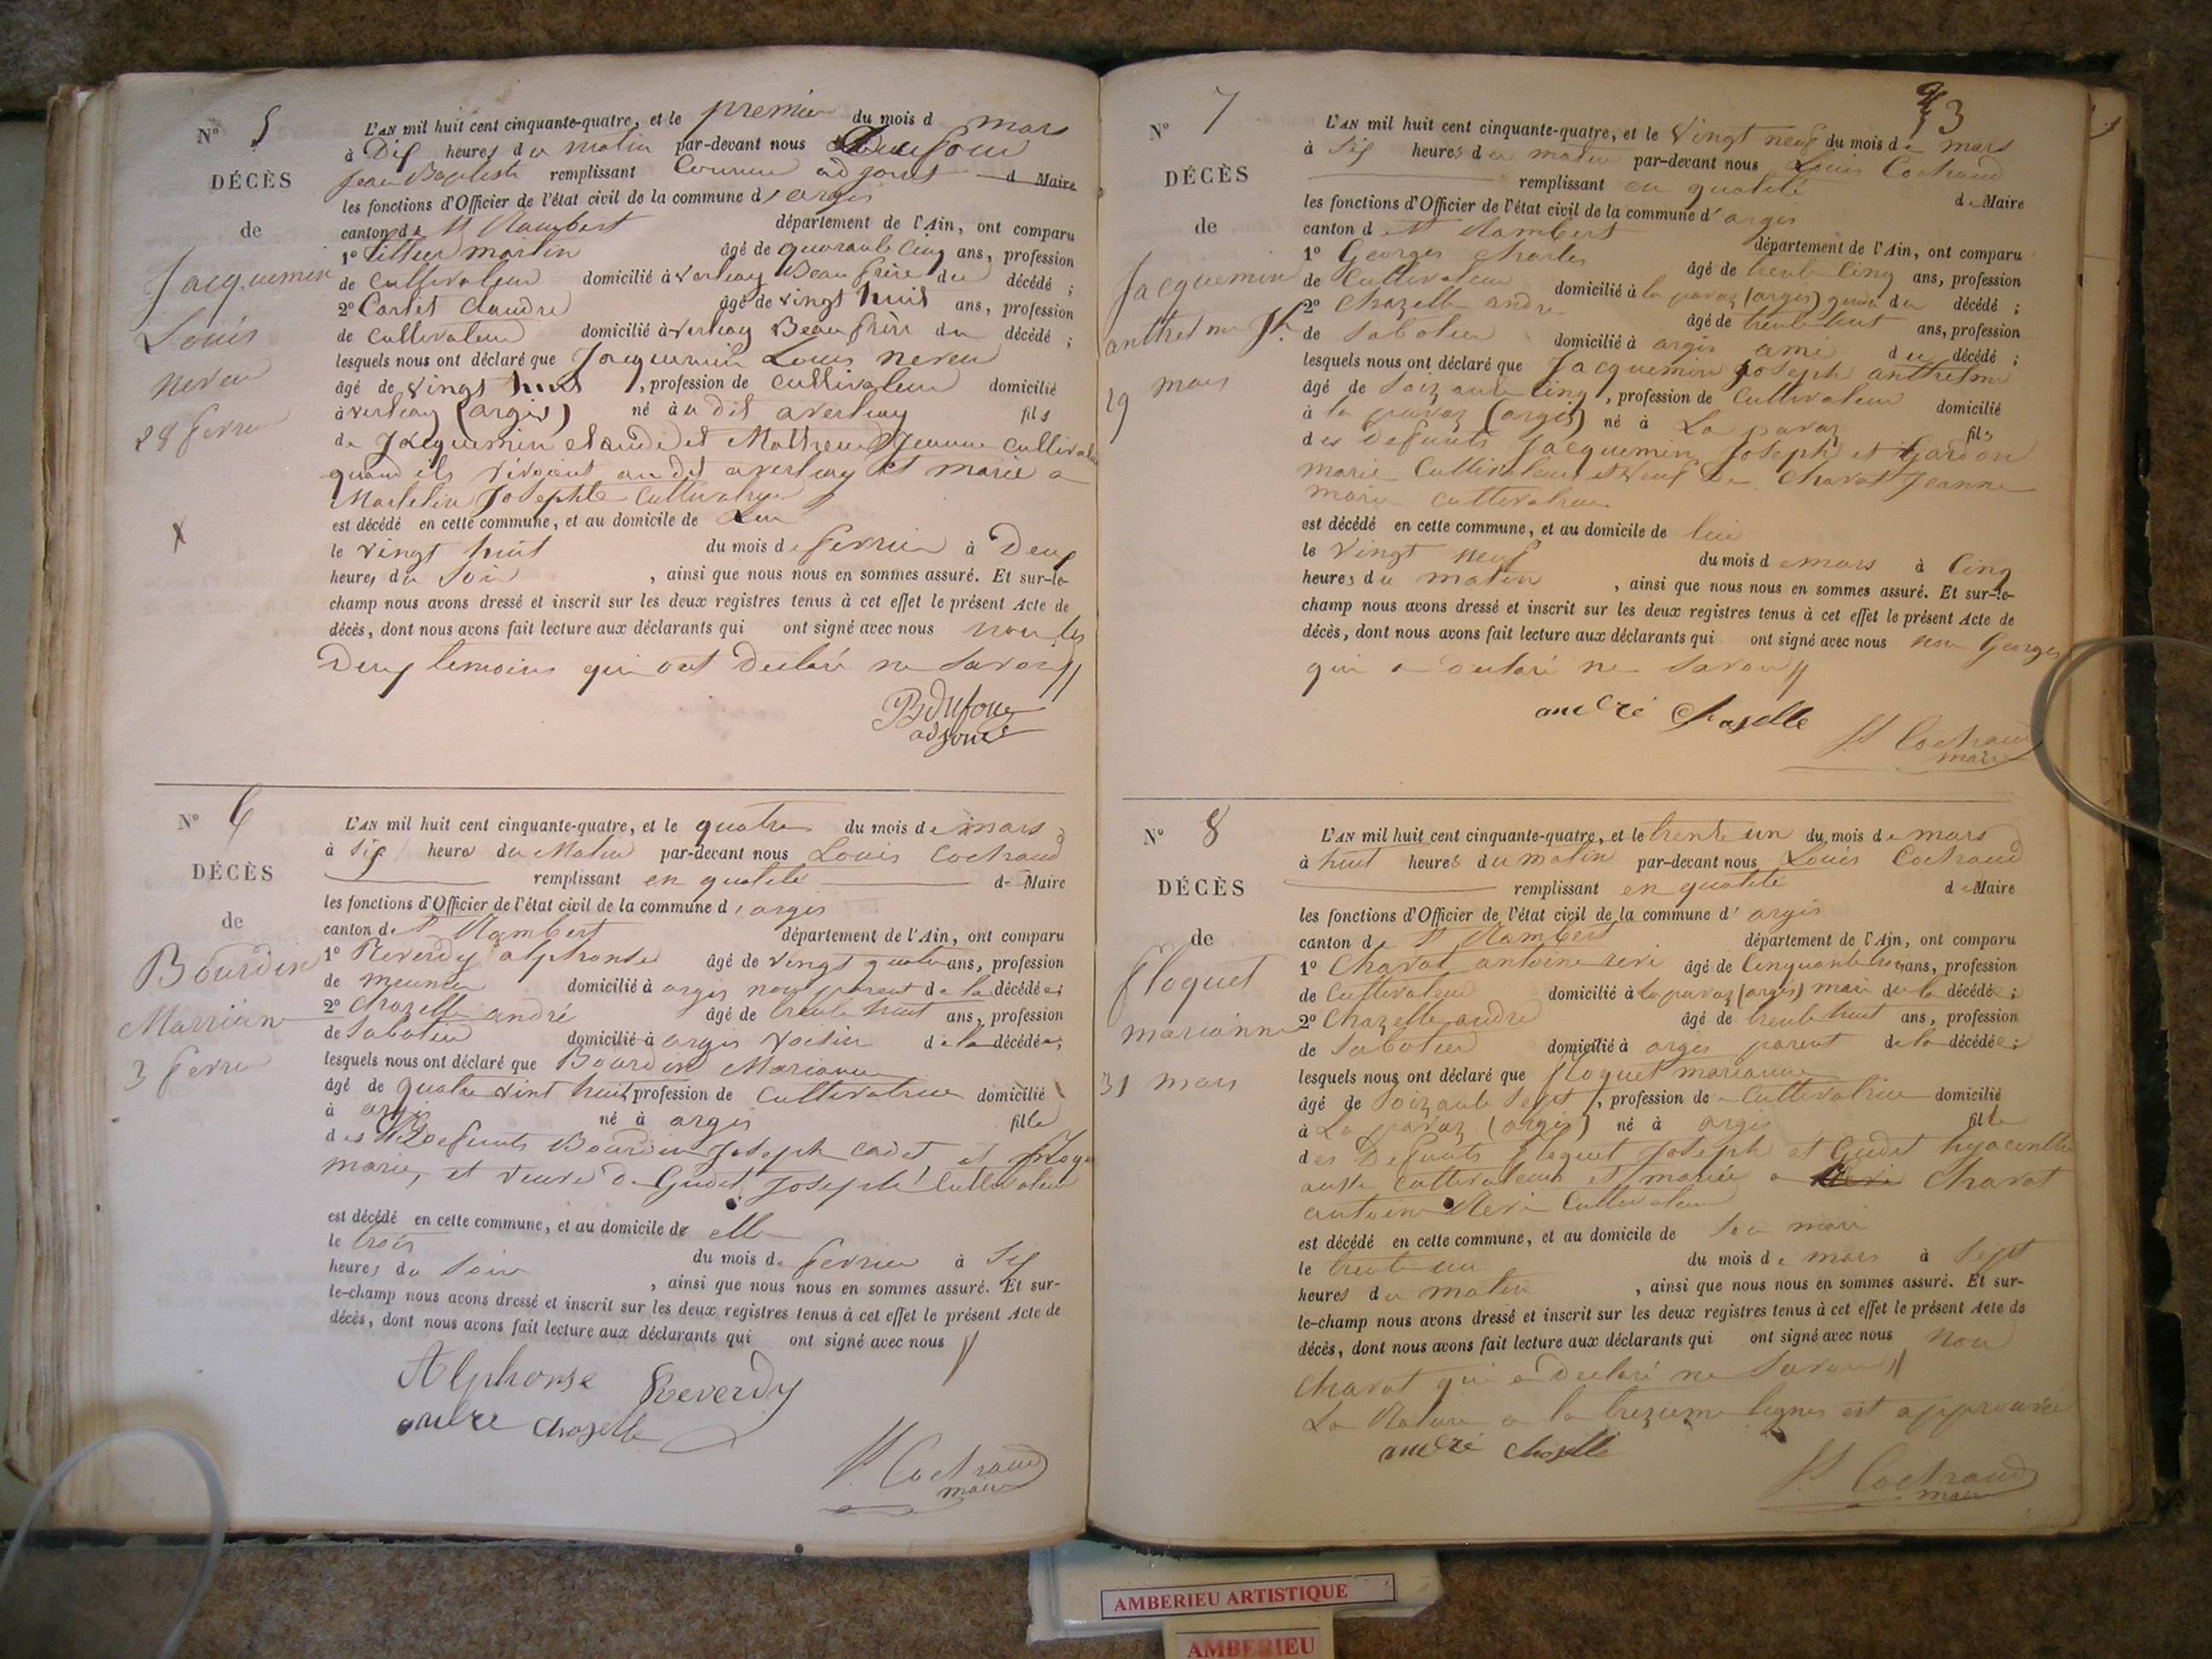 Nº 5
DÉCÈS
de
Jacquemin
Louis
neveu
28 fevrie
X
L'AN mil huit cent cinquante-quatre, et le premier du mois d mars
à Dix heures du matin par-devant nous Dufour
Jean Baptiste remplissant Comme adjoint d Maire
les fonctions d'Officier de l'état civil de la commune d'argis
canton de St Rambert département de l'Ain, ont comparu
1º martin âgé de quarante cinq ans, profession
de Cultivateur domicilié à Verleay Beau frère du décédé ;
2º Carlet Claudre âgé de vingt huit ans, profession
de cultivateur domicilié à Verleay Beau frère du décédé ;
lesquels nous ont déclaré que Jacquemin Louis neveu
âgé de vingt huit , profession de cultivateur domicilié
à verleay (argis) né à u dit averleay fils
de Jacquemin claude et Jeanne cultivateur
quand ils vivoient au dit averleay et marié a
Josephte Cultivatrice
est décédé en cette commune, et au domicile de Lui
le vingt huit du mois de fevrier à Deux
heures du Soir , ainsi que nous nous en sommes assuré. Et sur-le-
champ nous avons dressé et inscrit sur les deux registres tenus à cet effet le présent Acte de
décès, dont nous avons fait lecture aux déclarants qui ont signé avec nous non les
Deux temoins qui ont Declaré ne Savoir //
B Dufour
adjoint
Nº 6
DÉCÈS
de
Bourdin
Marrianne
3 fevrie
L'AN mil huit cent cinquante-quatre, et le quatre du mois de mars
à Six heure du Matin par-devant nous Louis Cochaud
remplissant en qualité de Maire
les fonctions d'Officier de l'état civil de la commune d'argis
canton de St Rambert département de l'Ain, ont comparu
1º Reverdy alphonse âgé de vingt quatre ans, profession
de meunier domicilié à argis non parent de la décédée ;
2º Chazelle andré âgé de trente huit ans, profession
de Sabotier domicilié à argis voisin de la décédée ;
lesquels nous ont déclaré que Bourdin Marianne
âgé de quatre vint huit, profession de cultivatrice domicilié
à argis né à argis fille
des Defunts Bourdin Joseph cadet et
marie, et veuve de Gudet Joseph Cultivateur
est décédé en cette commune, et au domicile de elle
le trois du mois de fevrier à Six
heures du Soir , ainsi que nous nous en sommes assuré. Et sur-
le-champ nous avons dressé et inscrit sur les deux registres tenus à cet effet le présent Acte de
décès, dont nous avons fait lecture aux déclarants qui ont signé avec nous //
Alphonse Reverdy
andre Chazelle
Ls Cochaud
maire
3
Nº 7
DÉCÈS
de
Jacquemin
anthelme Jh.
29 mars
L'AN mil huit cent cinquante-quatre, et le vingt neuf du mois de mars
à Six heures du matin par-devant nous Louis Cochaud
remplissant en qualité de Maire
les fonctions d'Officier de l'état civil de la commune d'argis
canton d St Rambert département de l'Ain, ont comparu
1º Georges Charles âgé de trente cinq ans, profession
de Cultivateur domicilié à la pavaz (argis) gendre du décédé ;
2º Chazelle andre âgé de trente huit ans, profession
de Sabotier domicilié à argis ami du décédé ;
lesquels nous ont déclaré que Jacquemin Joseph anthelme
âgé de Soixante cinq , profession de Cultivateur domicilié
à la pavaz (argis) né à La pavaz fils
des Defunts Jacquemin Joseph et Gardon
marie Cultivateurs et veuf de Charat Jeanne
marie cultivatrice
est décédé en cette commune, et au domicile de lui
le vingt neuf du mois de mars à Cinq
heures du matin , ainsi que nous nous en sommes assuré. Et sur-le-
champ nous avons dressé et inscrit sur les deux registres tenus à cet effet le présent Acte de
décès, dont nous avons fait lecture aux déclarants qui ont signé avec nous non Georges
qui a declaré ne Savoir //
andré Chazelle
Ls Cochaud
maire
Nº 8
DÉCÈS
de
floquet
marianne
31 mars
L'AN mil huit cent cinquante-quatre, et le trente un du mois de mars
à huit heures du matin par-devant nous Louis Cochaud
remplissant en qualité de Maire
les fonctions d'Officier de l'état civil de la commune d'argis
canton de St Rambert département de l'Ain, ont comparu
1º Charat antoine âgé de Cinquante trois ans, profession
de Cultivateur domicilié à la pavaz (argis) mari de la décédée ;
2º Chazelle andre âgé de trente huit ans, profession
de Sabotier domicilié à argis parent de la décédée ;
lesquels nous ont déclaré que floquet marianne
âgé de Soixante Sept , profession de Cultivatrice domicilié
à La pavaz (argis) né à argis fille
des Defunts floquet Joseph et Gudet hyacinthe
aussi cultivateurs et mariée a Charat
antoine Cultivateur
est décédé en cette commune, et au domicile de Son mari
le trente un du mois de mars à Sept
heures du matin , ainsi que nous nous en sommes assuré. Et sur-
le-champ nous avons dressé et inscrit sur les deux registres tenus à cet effet le présent Acte de
décès, dont nous avons fait lecture aux déclarants qui ont signé avec nous non
Charat qui a Declaré ne Savoir //
La Rature a la treizieme lignes est approuvée
andré Chazelle
Ls Cochaud
maire
AMBERIEU ARTISTIQUE
AMBERIEU